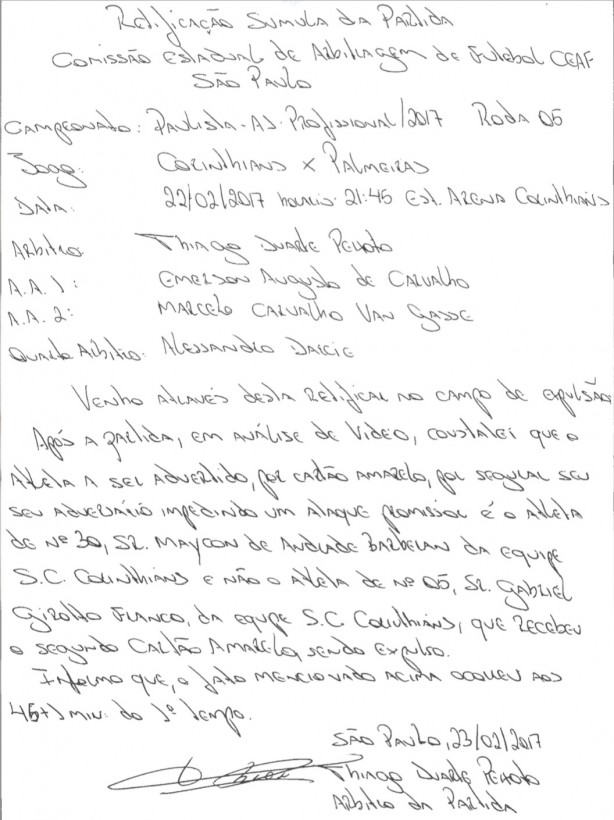 Retificação Sumula da Partida
Comissão Estadual de Arbitragem de Futebol CEAF
São Paulo
Campeonato: Paulista - A1 - Profissional/2017 Roda 05
Jogo: Corinthians x Palmeiras
Data: 22/02/2017 horario: 21:45 Est. Arena Corinthians
Arbitro: Thiago Duarte Peixoto
A.A. 1: Emerson Augusto de Carvalho
A.A. 2: Marcelo Carvalho Van Gasse
Quarto Arbitro: Alessandro Darcie
Venho através desta retificar no campo de expulsão
Após a partida, em análise de vídeo, constatei que o
atleta a ser advertido, por cartão amarelo, por segurar seu
seu adversário impedindo um ataque promissor é o atleta
de nº 30, Sr. Maycon de Andrade Barberan da equipe
S.C. Corinthians e não o atleta de nº 05, Sr. Gabriel
Girotto Franco, da equipe S.C Corinthians, que recebeu
o segundo cartão amarelo, sendo expulso.
Informo que, o fato mencionado acima ocorreu aos
45+1 min. do 1º tempo.
São Paulo, 23/02/2017
Thiago Duarte Peixoto
Arbitro da Partida